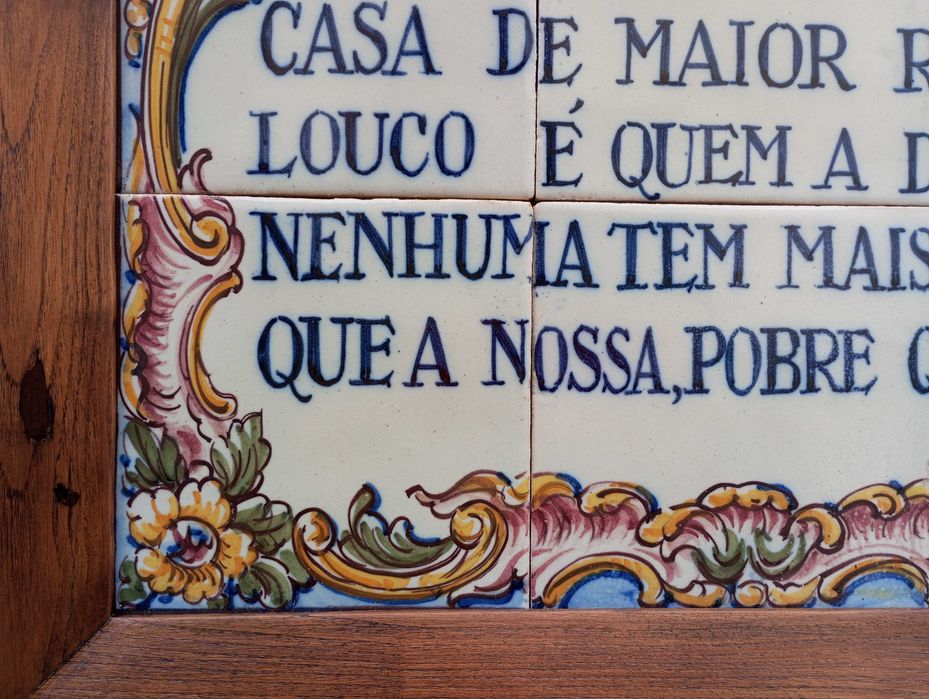 CASA DE MAIOR
LOUCO É QUEM A
NENHUMA TEM MAIS
QUE A NOSSA, POBRE